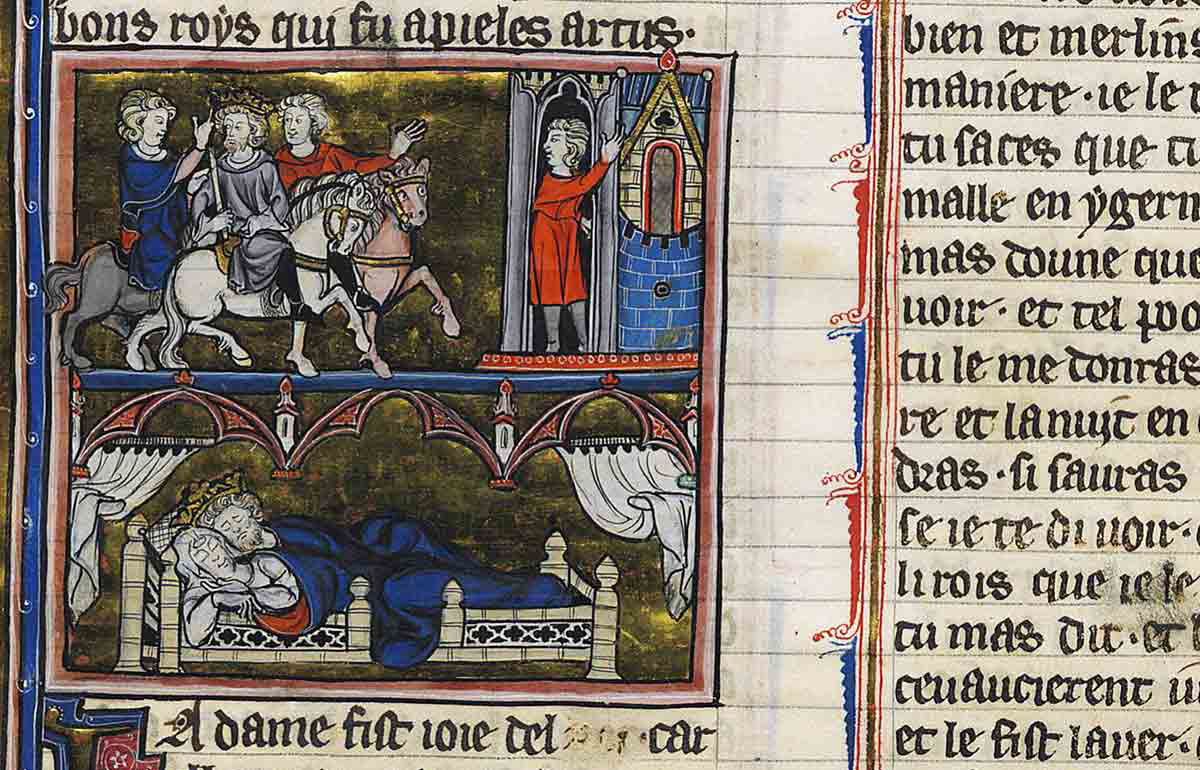 bons roÿs qui fu apieles artus·
A dame fist ioie del ·car
bien et merlins
maniere · ie le
tu saces que tu
malle en ÿgern
mas doune que
uoir · et tel poo
tu le me donras
re et la nuÿt en
dras · si sauras
se ie te di uoir ·
li rois que ie le
tu mas dit · et
ceuaucierent
et le fist lauer ·